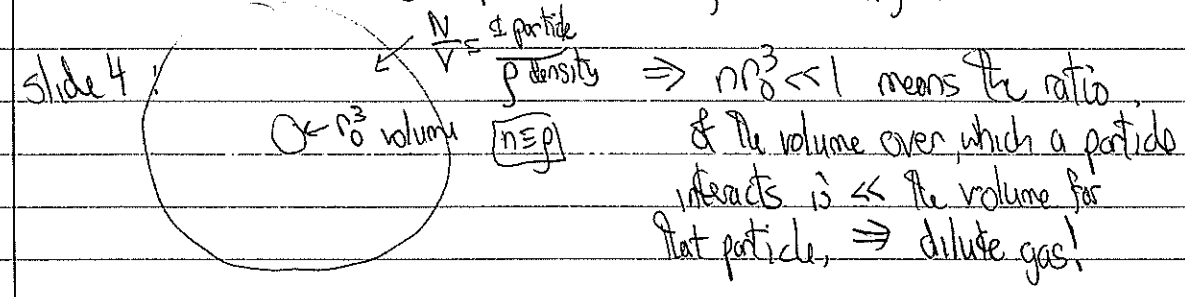 slide 4:
N/V = 1 particle / ρ density ⇒ nr₀³ << 1 means the ratio
○← r₀³ volume n≡ρ of the volume over which a particle
interacts is << the volume for
that particle, ⇒ dilute gas!